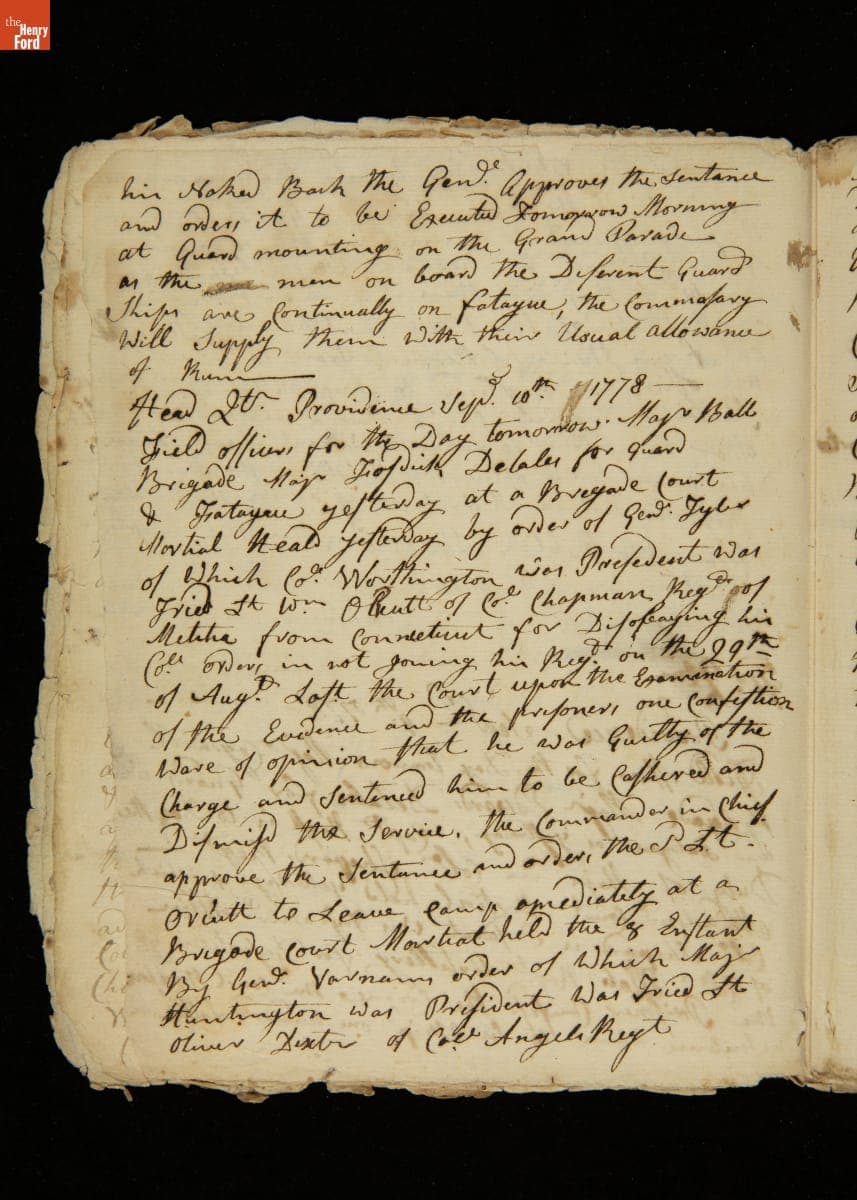 the Henry Ford
his Naked Back the Genl. Approves the Sentance
and orders it to be Executed Tomorrow Morning
at Guard mounting on the Grand Parade
as the men on board the Diferent Guard
Ships are Continually on fatague, the Commasary
Will Supply them with their Usual allowance
of Rum
Head Qts. Providence Sepd. 10th. 1778
Field officers for the Day tomorrow Majr Ball
Brigade Majr Fosdick Detales for guard
& Fatague yesterday at a Bregade Court
Martial Heald yesterday by order of Genl. Tyler
of Which Col. Worthington was Presedent was
Tried Lt Wm Orcutt of Col. Chapman Regt of
Melitia from Connecticut for Disobeaying his
Cols orders in not Joining his Regt. on the 29th
of Augt. Last the Court upon the Examination
of the Evidence and the prisoners one Confestion
Ware of opinion that he was Guilty of the
Charge and Sentenced him to be Cashered and
Dismissd the Service, the Commander in Chief
approve the Sentance and orders the Sd Lt.
Orcutt to Leave Camp amediately at a
Bregade Court Martial held the 8 Enstant
By Genl. Varnams order of Which Majr
Huntington was President Was Tried Lt
Oliver Dexter of Coll Angels Regt